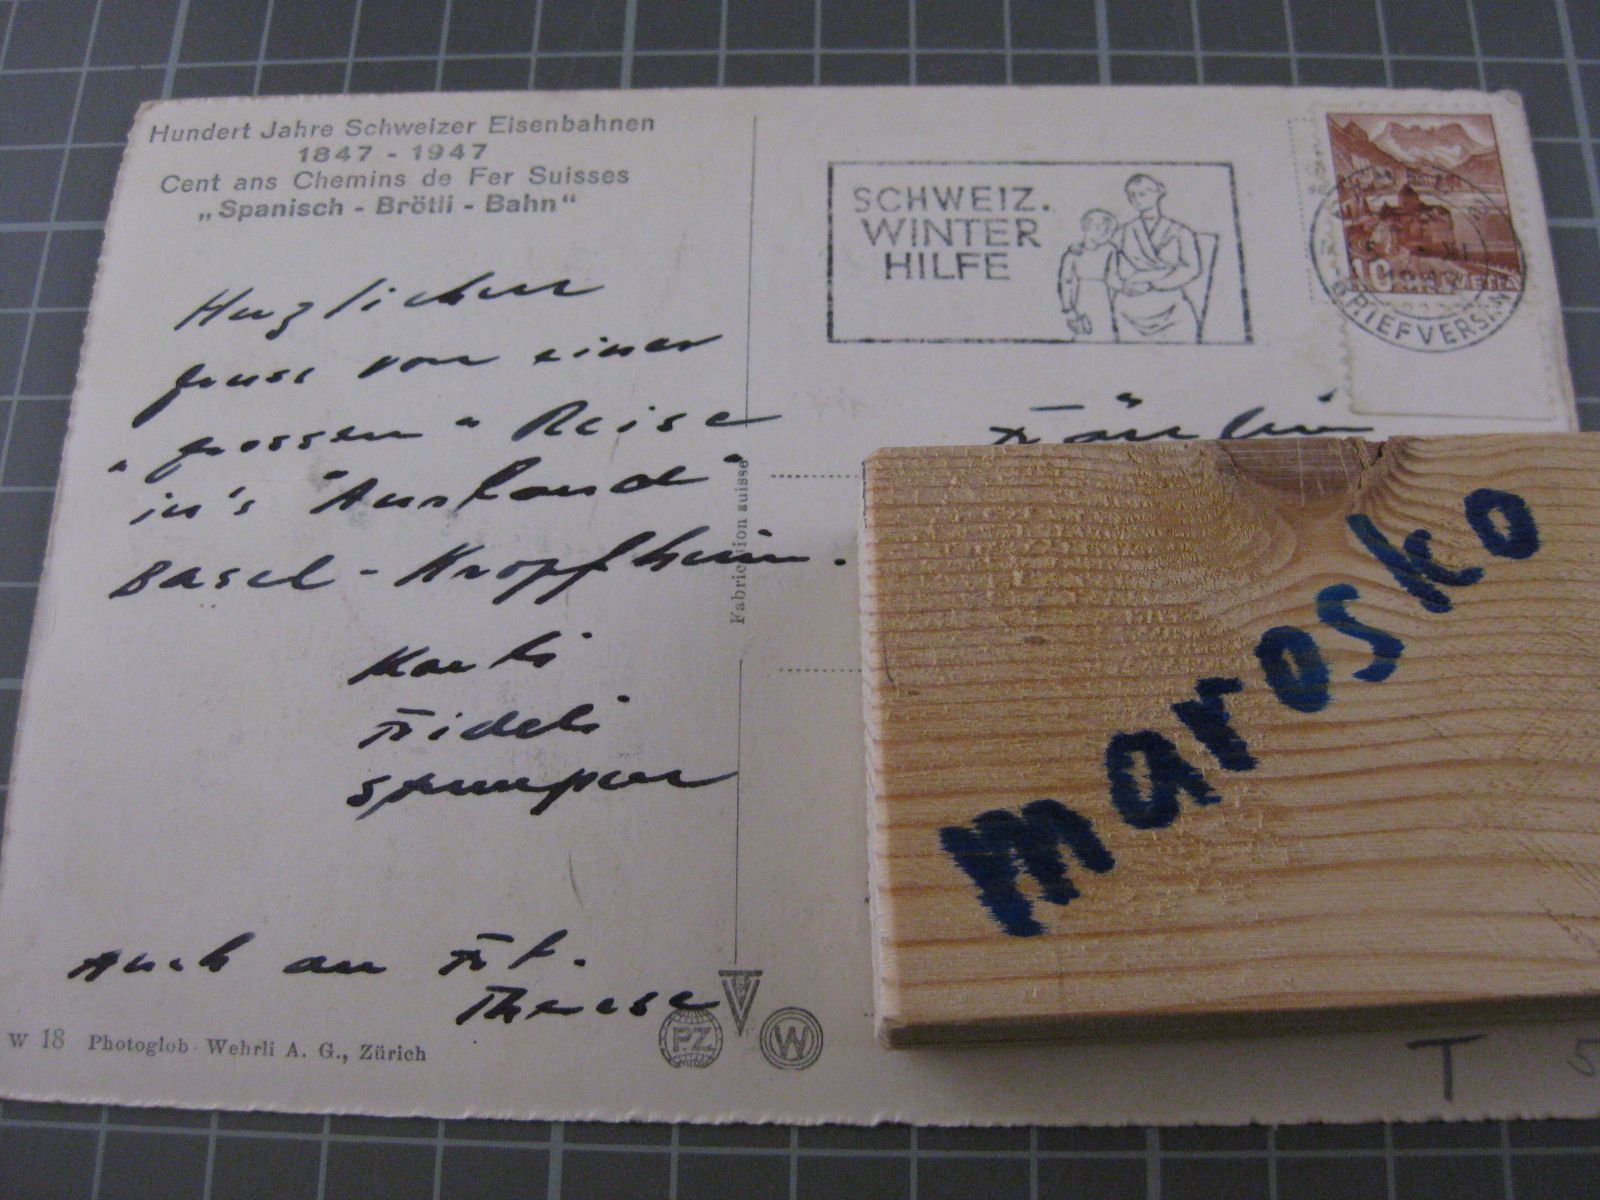 Hundert Jahre Schweizer Eisenbahnen
1847 - 1947
Cent ans Chemins de Fer Suisses
„Spanisch - Brötli - Bahn"
SCHWEIZ.
WINTER
HILFE
10
HELVETIA
BRIEFVERSAND
Herzlichen
Gruss von einer
"grossen" Reise
in's "Ausland"
Basel -
Fräulein
Fabrication suisse
Fideli
Auch an Frl.
Therese
W 18 Photoglob - Wehrli A. G., Zürich
PZ
W
marosko
T 5